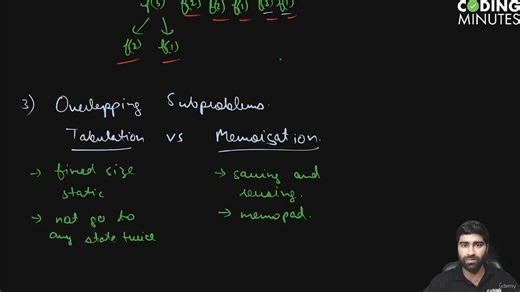 CODING
MINUTES
f(3) f(2) f(1) f(2) f(1)
f(2) f(1)
3) Overlapping Subproblems.
Tabulation vs Memoisation.
→ fixed size
static
→ not go to
any state twice
→ saving and
reusing.
→ memopad.
Udemy